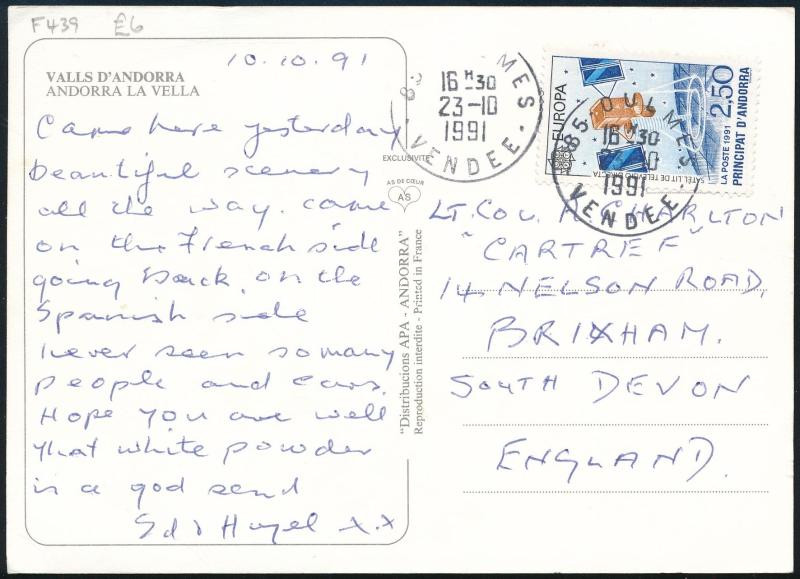 F439 £6
10.10.91
VALLS D'ANDORRA
ANDORRA LA VELLA
Came here yesterday
beautiful scenery
all the way. came
on the French side
going back on the
Spanish side
never seen so many
people and cars.
Hope you are well
that white powder
is a god send
Ed & Hazel x x
EXCLUSIVITÉ
AS DE CŒUR
AS
"Distribucions APA - ANDORRA"
Reproduction interdite - Printed in France
16 H 30
23-10
1991
MES
VENDEE
EUROPA
SATÈL.LIT DE TELEVISIÓ DIRECTA
2,50
LA POSTE 1991
PRINCIPAT D'ANDORRA
85 OULMES
16 H 30
1991
VENDEE
LT. COL. CHARLTON
"CARTREF"
14. NELSON ROAD,
BRIXHAM.
SOUTH DEVON
ENGLAND.